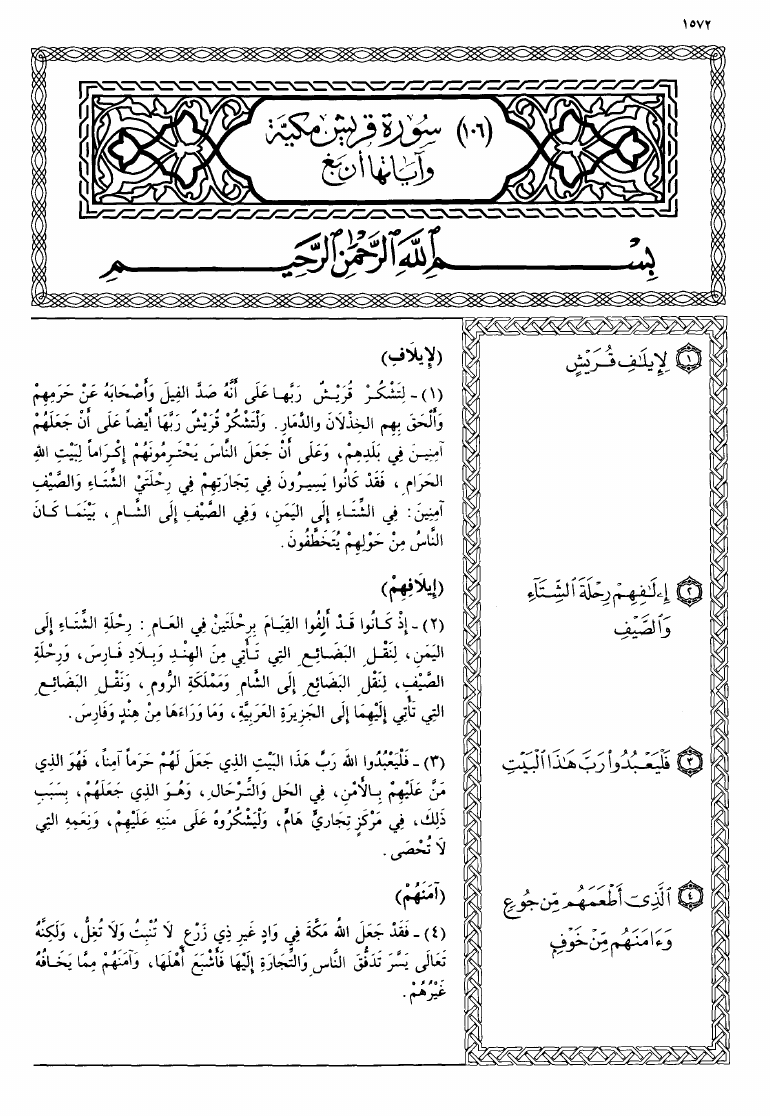 ١٥٧٢
(١٠٦) سُورَة قُرَيشٍ مَكيَّة
وَآيَاتهَا أَربَع
بِسْمِ ٱللَّهِ ٱلرَّحْمَٰنِ ٱلرَّحِيمِ
١ لِإِيلَٰفِ قُرَيْشٍ
٢ إِۦلَٰفِهِمْ رِحْلَةَ ٱلشِّتَآءِ
وَٱلصَّيْفِ
٣ فَلْيَعْبُدُوا۟ رَبَّ هَٰذَا ٱلْبَيْتِ
٤ ٱلَّذِىٓ أَطْعَمَهُم مِّن جُوعٍ
وَءَامَنَهُم مِّنْ خَوْفٍ
(لإِيلَافِ)
(١) - لِتَشْكُرْ قُرَيْشٌ رَبَّها عَلَى أَنَّهُ صَدَّ الفِيلَ وَأَصْحَابَهُ عَنْ حَرَمِهِمْ
وَأَلْحَقَ بِهِم الخِذْلَانَ والدَّمَارَ. وَلْتَشْكُرْ قُرَيْشٌ رَبَّهَا أَيْضاً عَلَى أَنْ جَعَلَهُمْ
آمِنِينَ فِي بَلَدِهِمْ، وَعَلَى أَنْ جَعَلَ النَّاسَ يَحْتَرِمُونَهُمْ إِكْرَاماً لِبَيْتِ اللهِ
الحَرَامِ، فَقَدْ كَانُوا يَسِيرُونَ فِي تِجَارَتِهِمْ فِي رِحْلَتَيْ الشِّتَاءِ وَالصَّيْفِ
آمِنِينَ: فِي الشِّتَاءِ إِلَى اليَمَنِ، وَفِي الصَّيْفِ إِلَى الشَّامِ، بَيْنَمَا كَانَ
النَّاسُ مِنْ حَوْلِهِمْ يُتَخَطَّفُونَ.
(إِيلَافِهِمْ)
(٢) - إِذْ كَانُوا قَدْ أَلِفُوا القِيَامَ بِرِحْلَتَيْنِ فِي العَامِ: رِحْلَةِ الشِّتَاءِ إِلَى
اليَمَنِ، لِنَقْلِ البَضَائِعِ التِي تَأْتِي مِنَ الهِنْدِ وَبِلَادِ فَارِسَ، وَرِحْلَةِ
الصَّيْفِ، لِنَقْلِ البَضَائِعِ إِلَى الشَّامِ وَمَمْلَكَةِ الرُّومِ، وَنَقْلِ البَضَائِعِ
التِي تَأْتِي إِلَيْهِمَا إِلَى الجَزِيرَةِ العَرَبِيَّةِ، وَمَا وَرَاءَهَا مِنْ هِنْدٍ وَفَارِسَ.
(٣) - فَلْيَعْبُدُوا اللهَ رَبَّ هَذَا البَيْتِ الذِي جَعَلَ لَهُمْ حَرَماً آمِناً، فَهُوَ الذِي
مَنَّ عَلَيْهِمْ بِالأَمْنِ، فِي الحَلِ وَالتِّرْحَالِ، وَهُوَ الذِي جَعَلَهُمْ، بِسَبَبِ
ذَلِكَ، فِي مَرْكَزٍ تِجَارِيٍّ هَامٍّ، وَلْيَشْكُرُوهُ عَلَى مَنِّهِ عَلَيْهِمْ، وَنِعَمِهِ التِي
لَا تُحْصَى.
(آمَنَهُمْ)
(٤) - فَقَدْ جَعَلَ اللهُ مَكَّةَ فِي وَادٍ غَيرِ ذِي زَرْعٍ لَا تُنْبِتُ وَلَا تُغِلُّ، وَلَكِنَّهُ
تَعَالَى يَسَّرَ تَدَفُّقَ النَّاسِ وَالتِّجَارَةِ إِلَيْهَا فَأَشْبَعَ أَهْلَهَا، وَآمَنَهُمْ مِمَّا يَخَافُهُ
غَيْرُهُمْ.